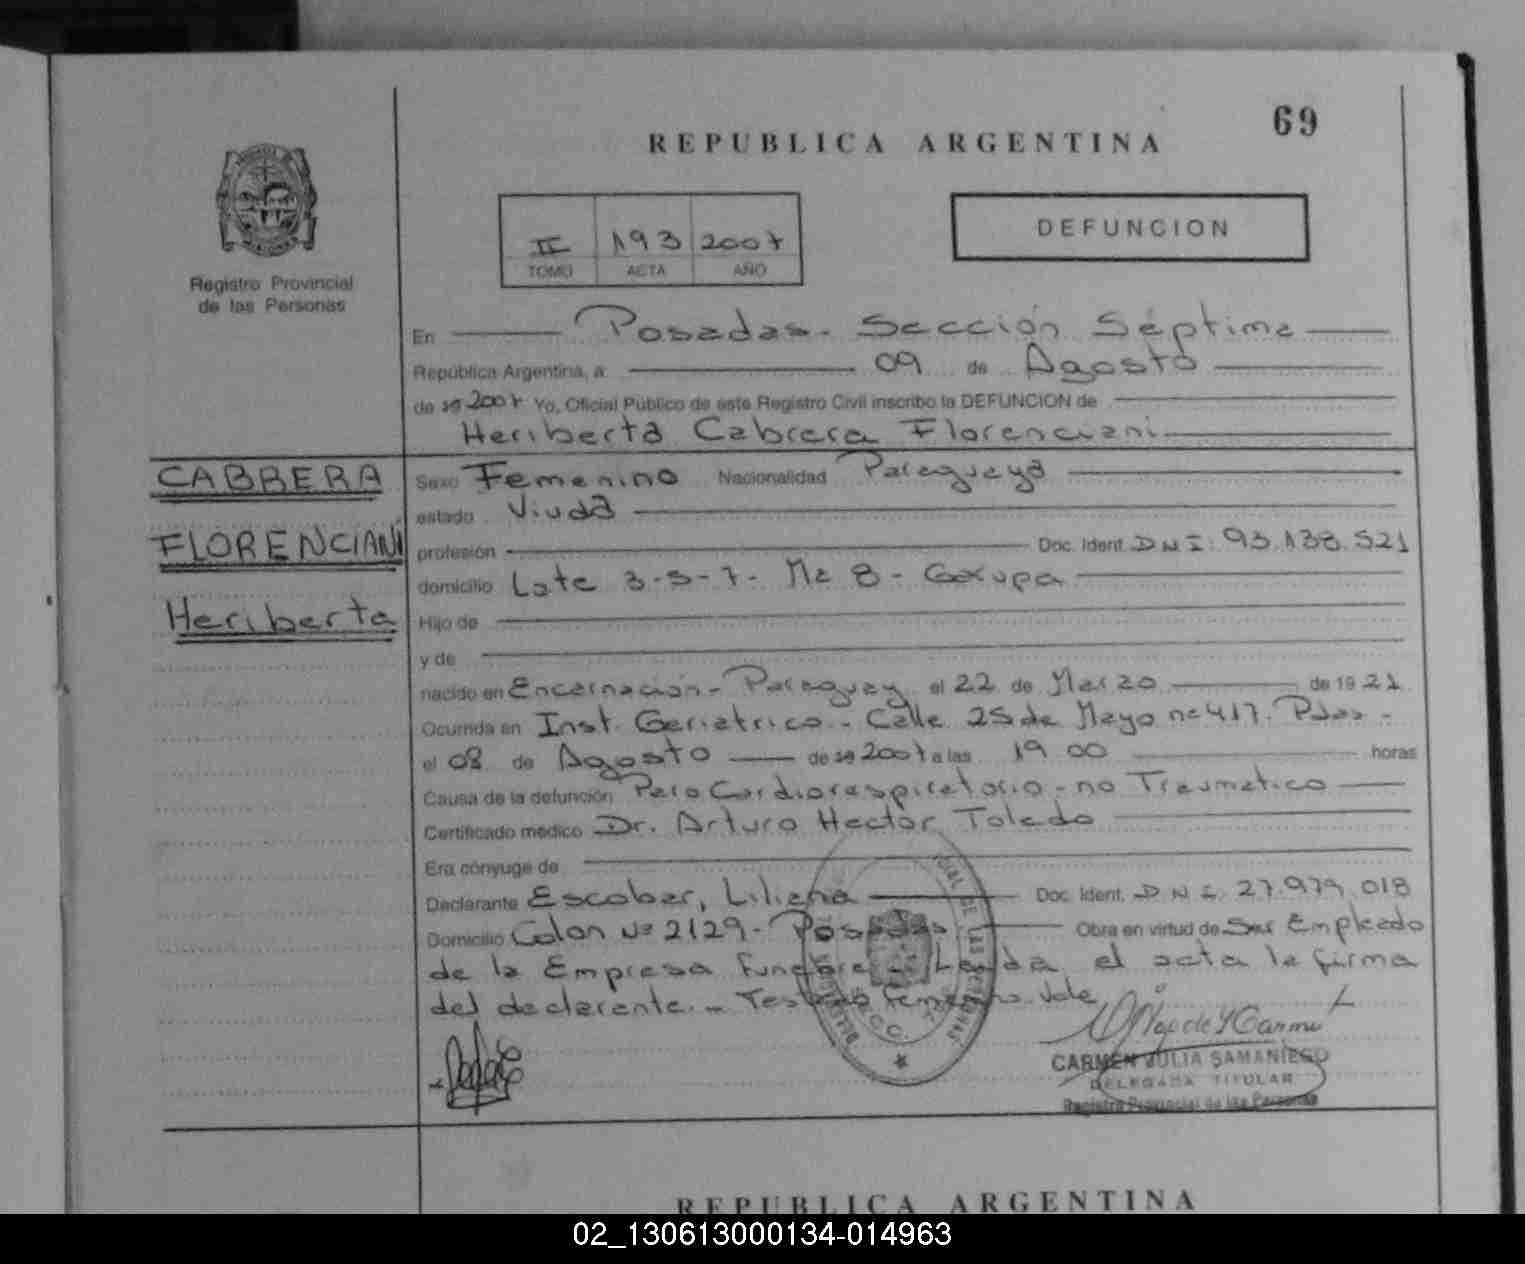 69
REPUBLICA ARGENTINA
Registro Provincial
de las Personas
II 193 2007
TOMO ACTA AÑO
DEFUNCION
En Posadas - Sección Séptima
República Argentina, a 09 de Agosto
de 19 2007 Yo, Oficial Público de este Registro Civil inscribo la DEFUNCION de
Heriberta Cabrera Florenciani
CABRERA
FLORENCIANI
Heriberta
Sexo Femenino Nacionalidad Paraguaya
estado Viuda
profesión Doc. Ident. D N I. 93.138.521
domicilio Lote 3-5-7- Mz 8 - Garupa
Hijo de
y de
nacido en Encarnación - Paraguay el 22 de Marzo de 19 21
Ocurrida en Inst. Geriatrico - Calle 25 de Mayo nº 417. Pdas -
el 08 de Agosto de 19 2007 a las 19 00 horas
Causa de la defunción Paro Cardiorespiratorio - no Traumatico
Certificado médico Dr. Arturo Hector Toledo
Era cónyuge de
Declarante Escobar, Liliana Doc. Ident. D N I. 27.979.018
Domicilio Colon Nº 2129 - Posadas Obra en virtud de Ser Empleado
de la Empresa Funebre - Leida el acta la firma
del declarante. - Testado Femenino. Vale
CARMEN JULIA SAMANIEGO
DELEGADA TITULAR
Registro Provincial de las Personas
REPUBLICA ARGENTINA
02_130613000134-014963